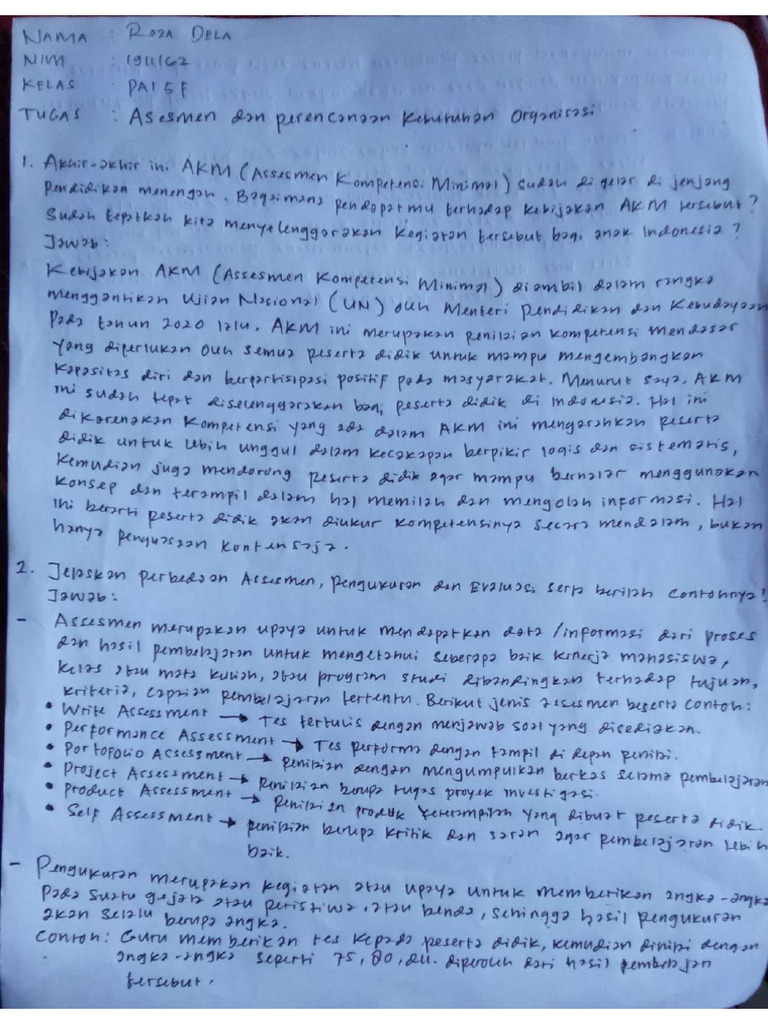 NAMA : ROZA DELA
NIM : 1911162
KELAS : PAI 5F
TUGAS : Asesmen dan perencanaan Kebutuhan Organisasi
1. Akhir-akhir ini AKM (Assesmen Kompetensi Minimal) sudah di gelar di jenjang
pendidikan menengah. Bagaimana pendapatmu terhadap kebijakan AKM tersebut?
Sudah tepatkah kita menyelenggarakan kegiatan tersebut bagi anak Indonesia?
Jawab:
Kebijakan AKM (Assesmen Kompetensi Minimal) diambil dalam rangka
menggantikan Ujian Nasional (UN) oleh Menteri Pendidikan dan Kebudayaan
pada tahun 2020 lalu. AKM ini merupakan penilaian kompetensi mendasar
yang diperlukan oleh semua peserta didik untuk mampu mengembangkan
kapasitas diri dan berpartisipasi positif pada masyarakat. Menurut saya, AKM
ini sudah tepat diselenggarakan bagi peserta didik di Indonesia. Hal ini
dikarenakan kompetensi yang ada dalam AKM ini mengarahkan peserta
didik untuk lebih unggul dalam kecakapan berpikir logis dan sistematis,
kemudian juga mendorong peserta didik agar mampu bernalar menggunakan
konsep dan terampil dalam hal memilah dan mengolah informasi. Hal
ini berarti peserta didik akan diukur kompetensinya secara mendalam, bukan
hanya penguasaan konten saja.
2. Jelaskan perbedaan Assesmen, pengukuran dan Evaluasi serta berilah contohnya!
Jawab:
- Assesmen merupakan upaya untuk mendapatkan data/informasi dari proses
dan hasil pembelajaran untuk mengetahui seberapa baik kinerja mahasiswa,
kelas atau mata kuliah, atau program studi dibandingkan terhadap tujuan,
kriteria, capaian pembelajaran tertentu. Berikut jenis asesmen beserta contoh:
• Write Assessment → Tes tertulis dengan menjawab soal yang disediakan.
• Performance Assessment → Tes performa dengan tampil di depan penilai.
• Portofolio Assessment → penilaian dengan mengumpulkan berkas selama pembelajaran
• Project Assessment → penilaian berupa tugas proyek investigasi.
• Product Assessment → penilaian produk keterampilan yang dibuat peserta didik.
• Self Assessment → penilaian berupa kritik dan saran agar pembelajaran lebih
baik.
- Pengukuran merupakan kegiatan atau upaya untuk memberikan angka-angka
pada suatu gejala atau peristiwa, atau benda, sehingga hasil pengukuran
akan selalu berupa angka.
Contoh: Guru memberikan tes kepada peserta didik, kemudian dinilai dengan
angka-angka seperti 75, 80, dll. diperoleh dari hasil pembelajan
tersebut.